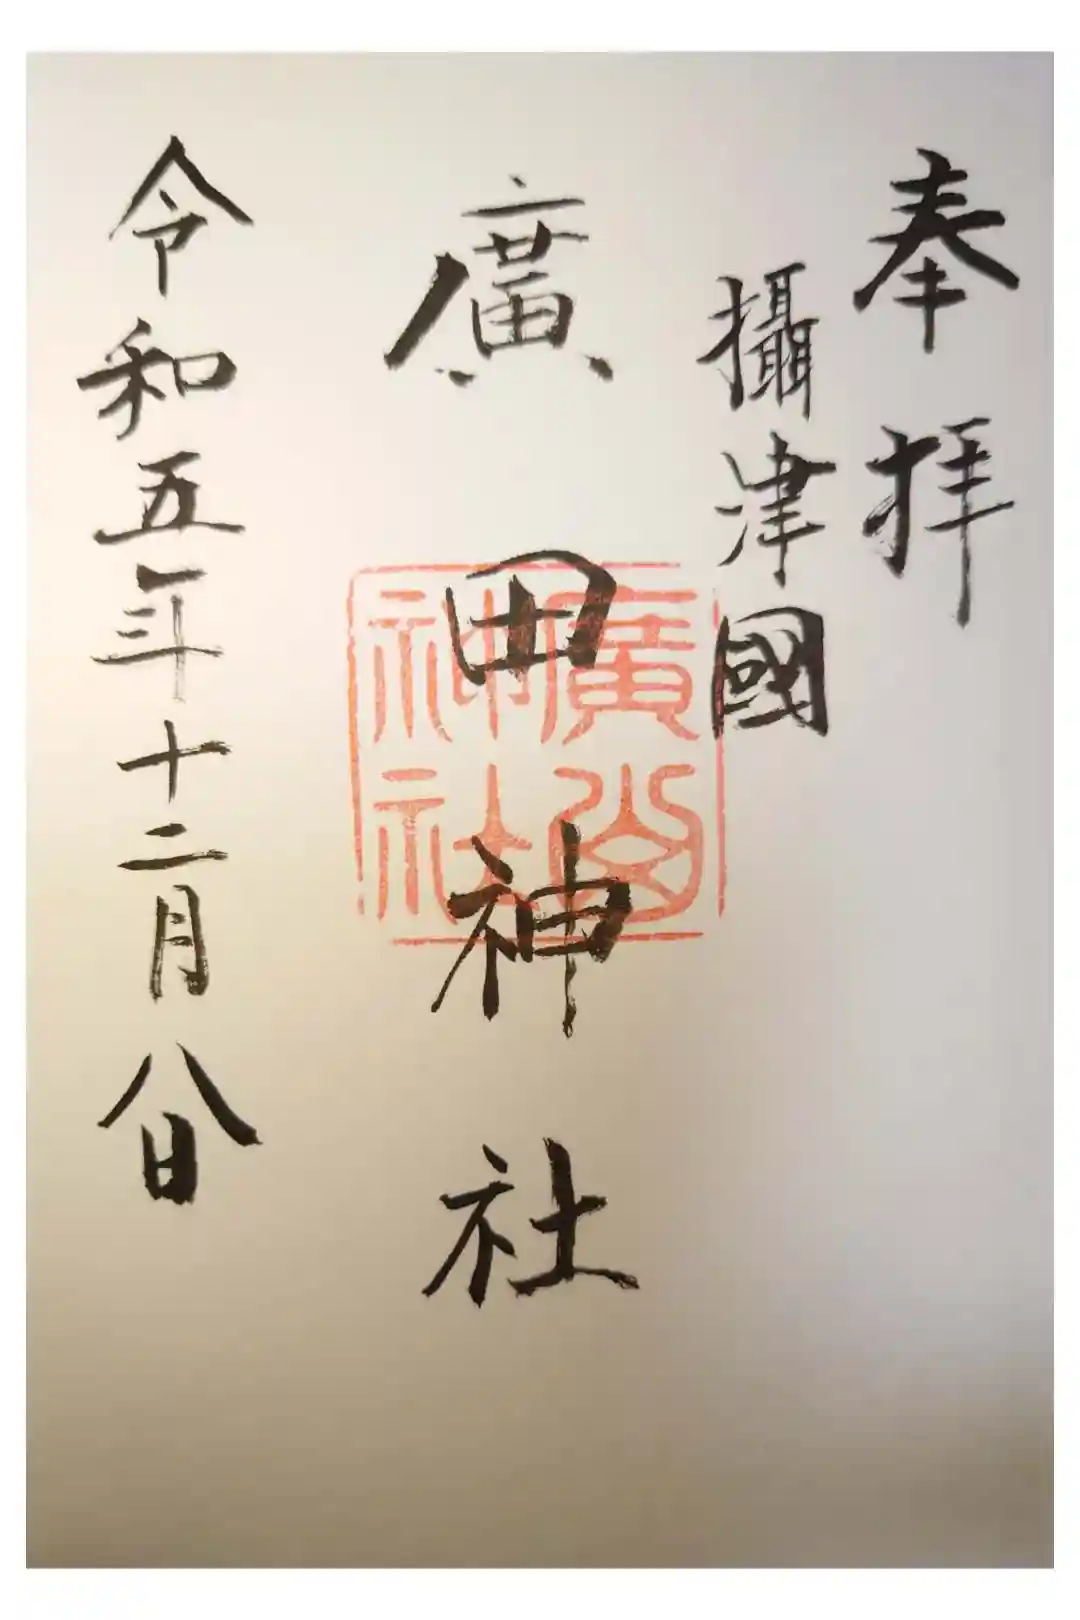 奉拝
攝津國
廣田神社
令和五年十二月八日